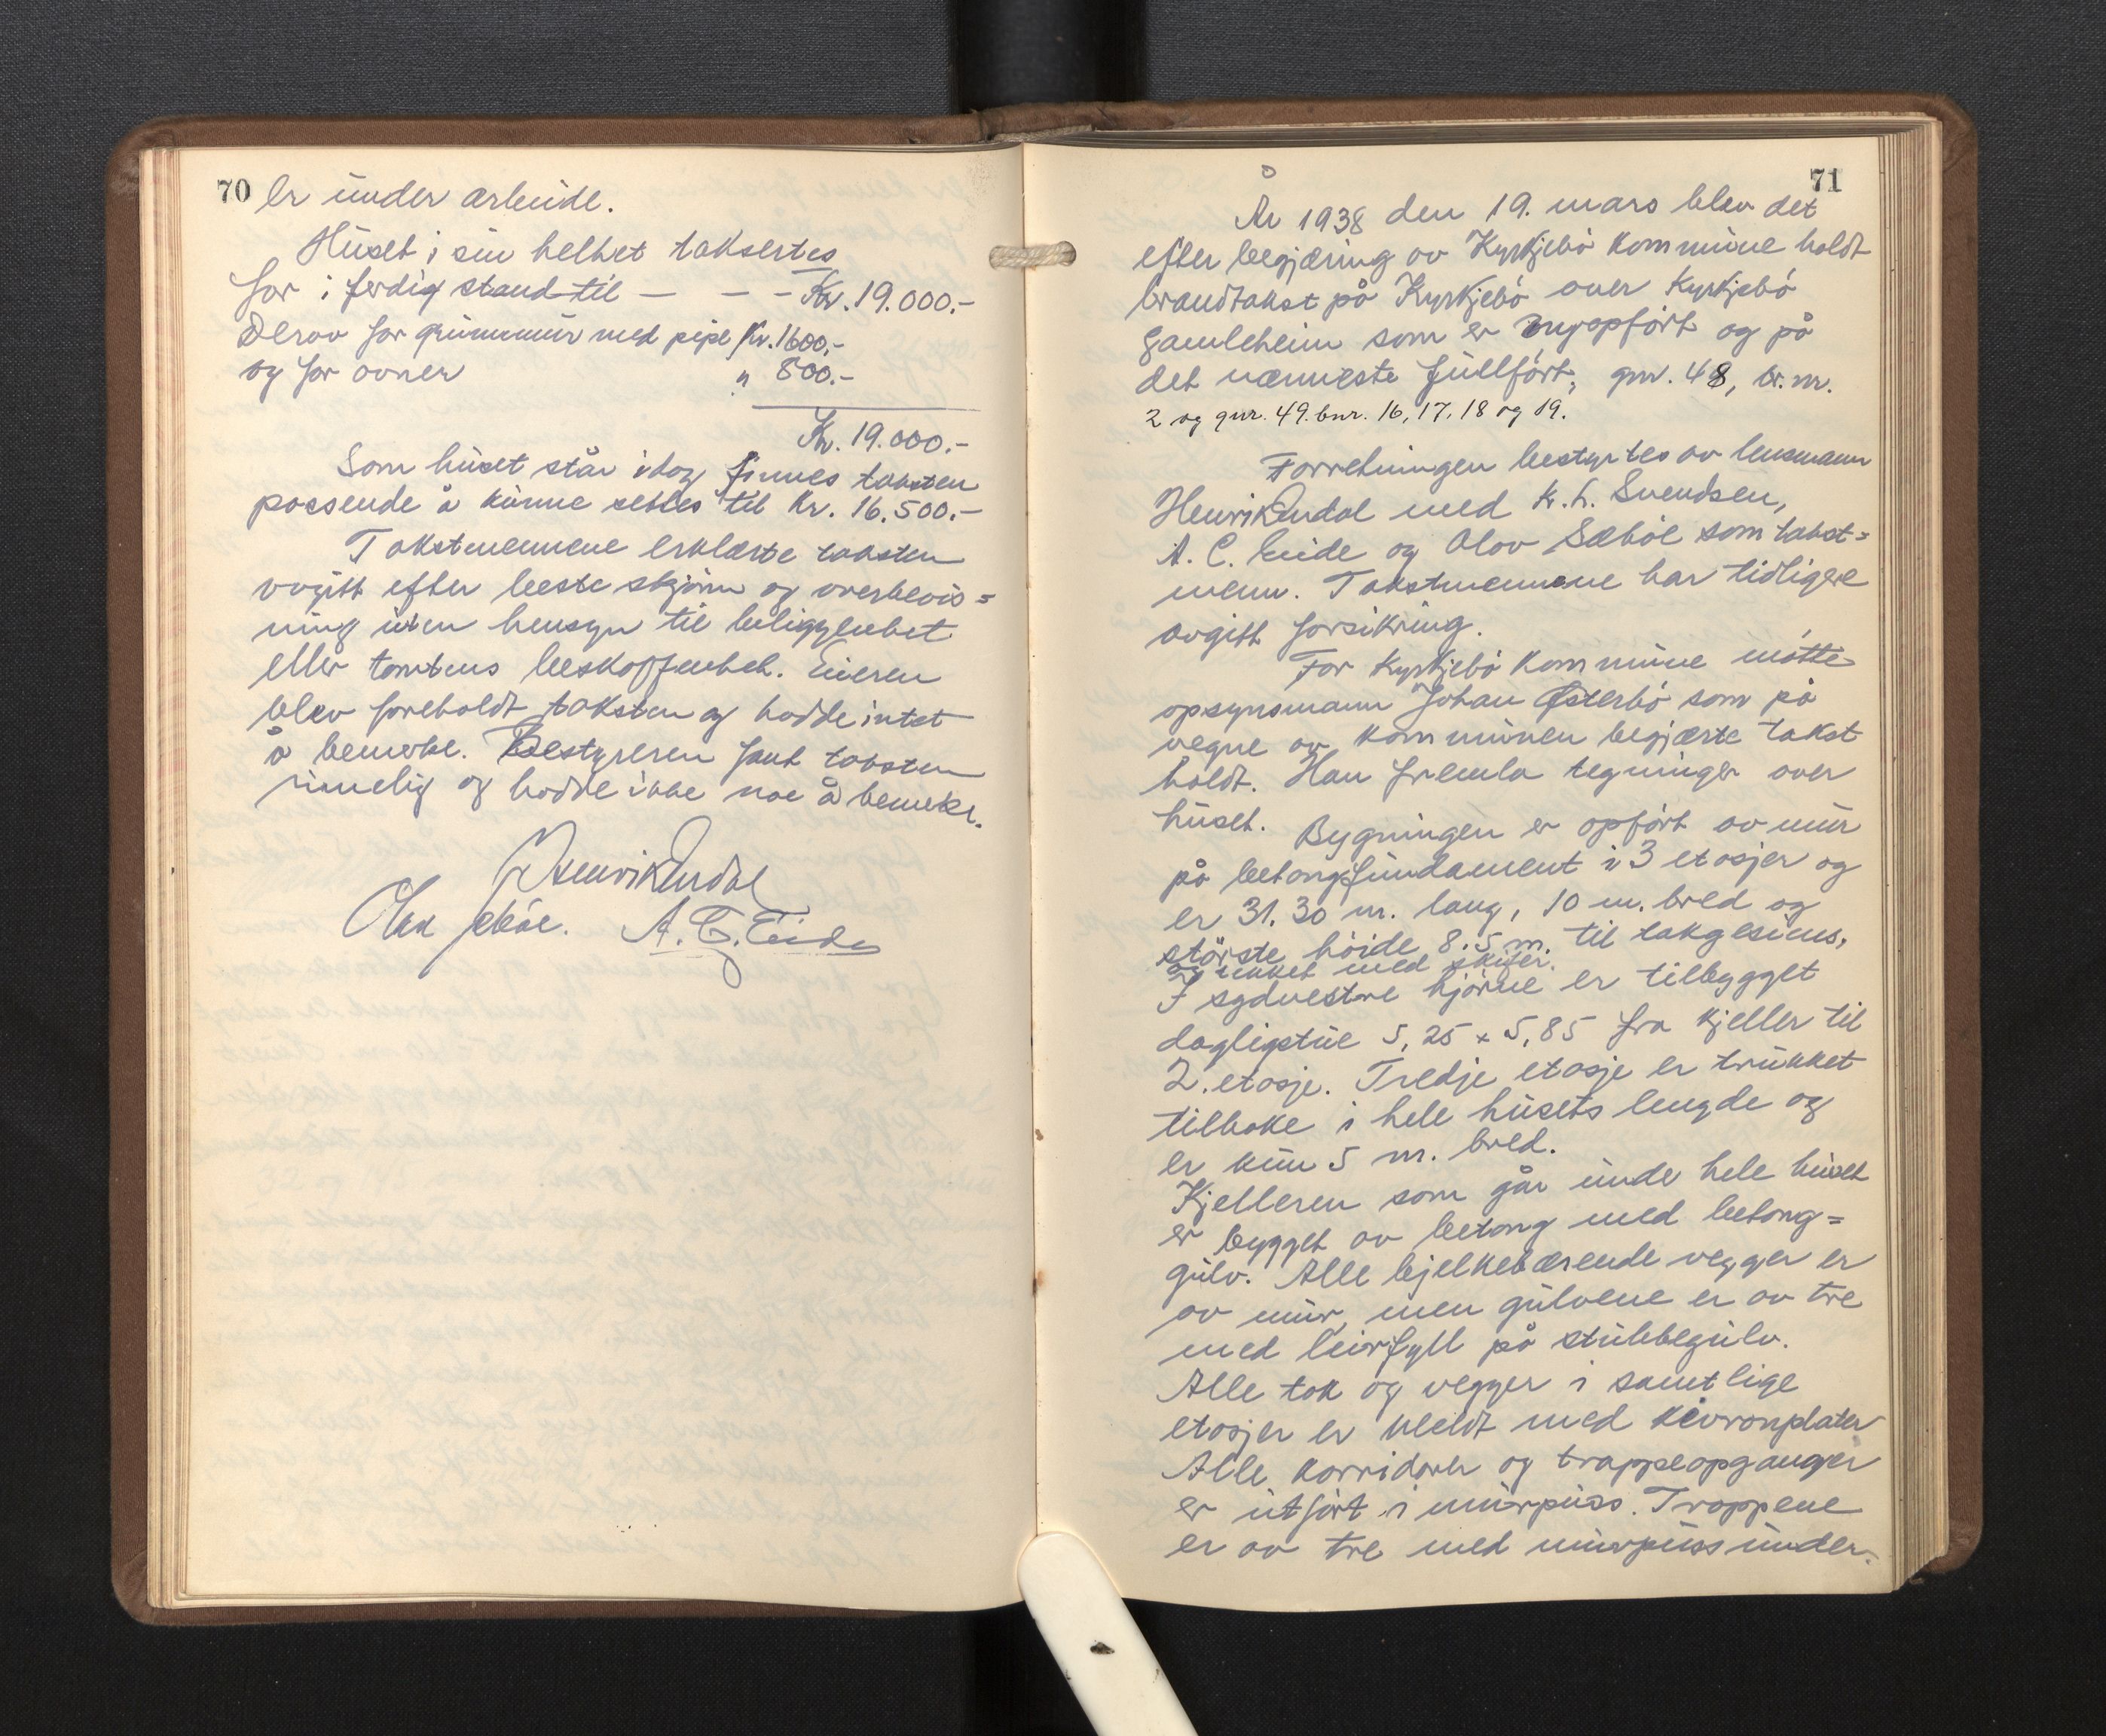 70
er under arbeide.
Huset i sin helhet taksertes
for i ferdig stand til — — - Kr. 19.000.-
Derav for grunnmur med pipe Kr. 1600.-
og for ovner " 800.-
Kr. 19.000.-
Som huset står idag finnes taksten
passende å kunne settes til Kr. 16.500.-
Takstmennene erklærte taksten
avgitt efter beste skjønn og overbevis=
ning uten hensyn til beliggenhet
eller tomtens beskaffenhet. Eieren
blev foreholdt taksten og hadde intet
å bemerke. Bestyreren fant taksten
rimelig og hadde ikke noe å bemerke.
Henrik Endal
Olav Sæbøe. A. C. Eide
71
År 1938 den 19. mars blev det
efter begjæring av Kyrkjebø kommune holdt
brandtakst på Kyrkjebø over Kyrkjebø
Gamleheim som er nyopført og på
det nærmeste fullført, gnr. 48, br. nr.
2 og gnr. 49. bnr. 16, 17, 18 og 19.
Forretningen bestyrtes av lensmann
Henrik Endal med K. L. Svendsen,
A. C. Eide og Olav Sæbøe som takst=
menn. Takstmennene har tidligere
avgitt forsikring.
For Kyrkjebø kommune møtte
opsynsmann Johan Østerbø som på
vegne av kommunen begjærte takst
holdt. Han fremla tegninger over
huset.
Bygningen er opført av mur
på betongfundament i 3 etasjer og
er 31.30 m. lang, 10 m. bred og
største høide 8.5 m. til takgesims,
og tekket med skifer.
I sydvestre hjørne er tilbygget
dagligstue 5,25 x 5,85 fra kjeller til
2. etasje. Tredje etasje er trukket
tilbake i hele husets lengde og
er kun 5 m. bred.
Kjelleren som går unde hele huset
er bygget av betong med betong=
gulv. Alle bjelkebærende vegger er
av mur, men gulvene er av tre
med leirfyll på stubbegulv.
Alle tak og vegger i samtlige
etasjer er kledt med kivronplater
Alle korridorer og trappeopganger
er utført i murpuss. Trappene
er av tre med murpuss under.